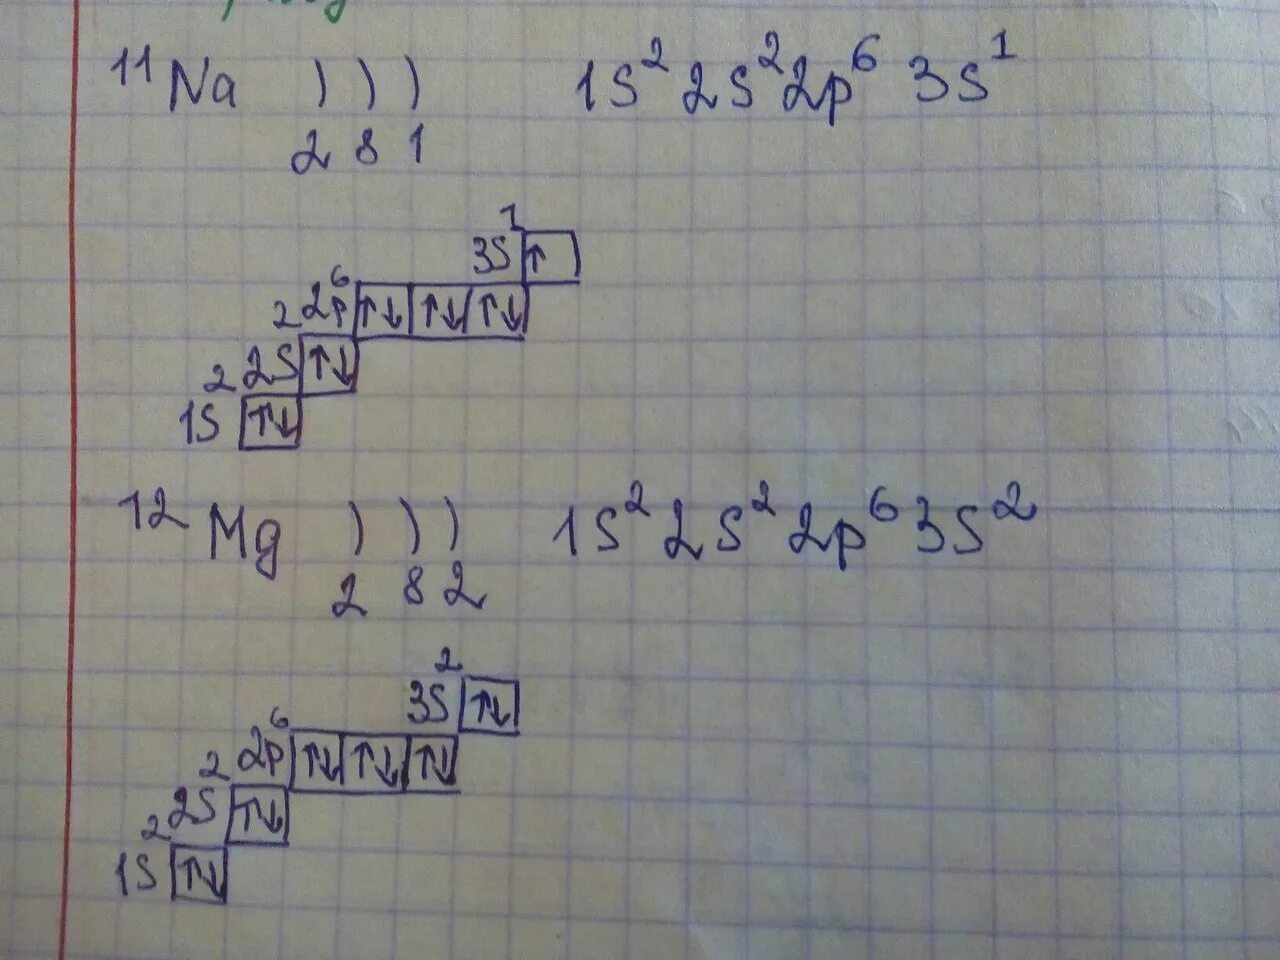 11 Na ) ) ) 1s² 2s² 2p⁶ 3s¹
2 8 1
3s¹ ↑
2p⁶ ↑↓ ↑↓ ↑↓
2s² ↑↓
1s² ↑↓
12 Mg ) ) ) 1s² 2s² 2p⁶ 3s²
2 8 2
3s² ↑↓
2p⁶ ↑↓ ↑↓ ↑↓
2s² ↑↓
1s² ↑↓